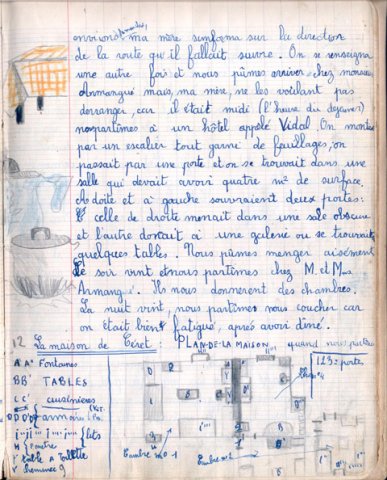 environs ma mère s'informa sur la direction
de la route qu'il fallait suivre. On se renseigna
une autre fois et nous pûmes arriver chez monsieur
Armangué mais, ma mère, ne les voilant pas
derranger, car il était midi (l'heure du dejeuner)
nous partîmes à un hôtel appelé Vidal. On montait
par un escalier tout garni de feuillages, on
passait par une porte et on se trouvait dans une
salle qui devait avoir quatre m² de surface.
A doite et a gauche souvraient deux portes:
celle de droite menait dans une sale obscure
et l'autre donait à une galerie ou se trouvait
quelques tables. Nous pûmes manger aisément
Le soir vint et nous partîmes chez M. et Mme
Armangué. Ils nous donnerent des chambres.
La nuit vint, nous partîmes nous coucher car
on était bien fatigué, après avoir diné.
12 La maison de Céret: PLAN DE LA MAISON quand nous
A A' Fontaines
BB' TABLES
CC' cuisinières
DD'D" armoires
lits
H
table a toilette
cheminée
1 2 3: porte
Chambre no 1